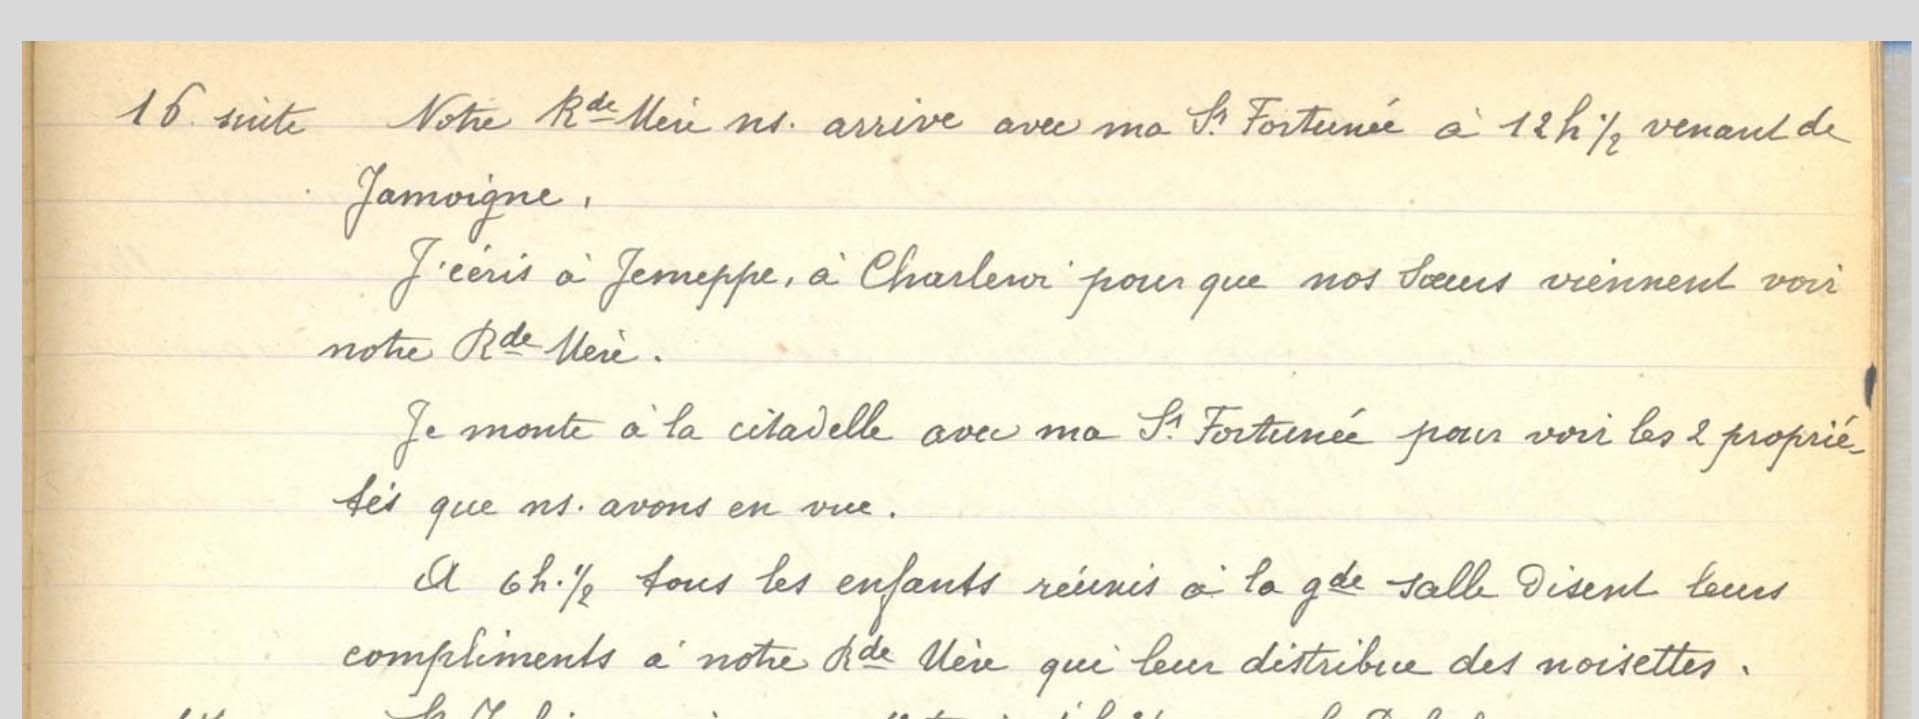 16 suite Notre Rde Mère ns. arrive avec ma Sr Fortunée à 12h 1/2 venant de
Jamoigne.
J'écris à Jemeppe, à Charleroi pour que nos Sœurs viennent voir
notre Rde Mère.
Je monte à la citadelle avec ma Sr Fortunée pour voir les 2 proprié-
tés que ns. avons en vue.
A 6h. 1/2 tous les enfants réunis à la gde salle disent leurs
compliments à notre Rde Mère qui leur distribue des noisettes.